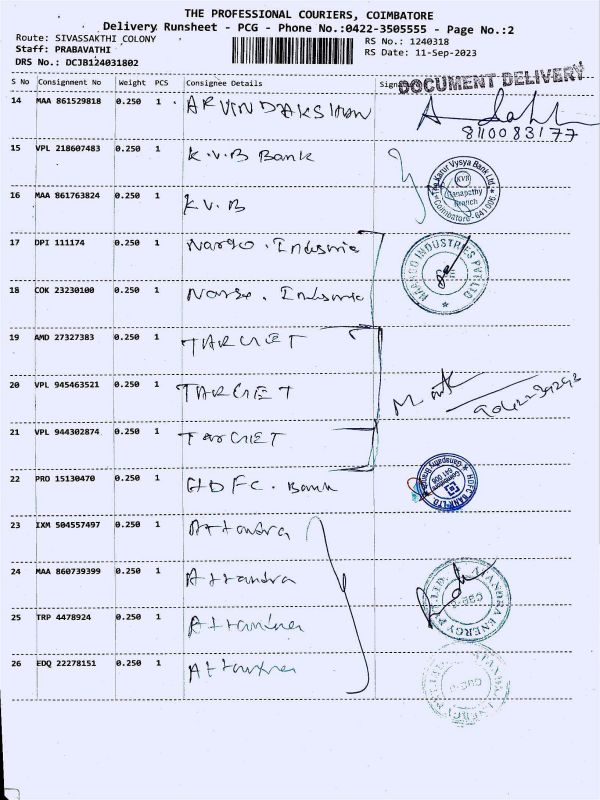 THE PROFESSIONAL COURIERS, COIMBATORE
Delivery Runsheet - PCG - Phone No.:0422-3505555 - Page No.:2
Route: SIVASSAKTHI COLONY
RS No.: 1240318
Staff: PRABAVATHI
RS Date: 11-Sep-2023
DRS No.: DCJB124031802
DOCUMENT DELIVERY
S No Consignment No Weight PCS Consignee Details Sign
14 MAA 861529818 0.250 1 ARVIND DAKSHAN
8110083177
15 VPL 218607483 0.250 1 K.V.B Bank
The Karur Vysya Bank Ltd.
KVB
Ganapathy
Branch
Coimbatore - 641 006
16 MAA 861763824 0.250 1 K.V.B
17 DPI 111174 0.250 1
INDUSTRIES PVT LTD
18 COK 23230100 0.250 1
19 AMD 27327383 0.250 1 TARGET
20 VPL 945463521 0.250 1 TARGET
21 VPL 944302874 0.250 1 TARGET
22 PRO 15130470 0.250 1 HDFC. Bank
HDFC BANK LTD
Ganapathy Branch
Coimbatore
641 006
23 IXM 504557497 0.250 1
24 MAA 860739399 0.250 1
ENERGY
25 TRP 4478924 0.250 1
26 EDQ 22278151 0.250 1